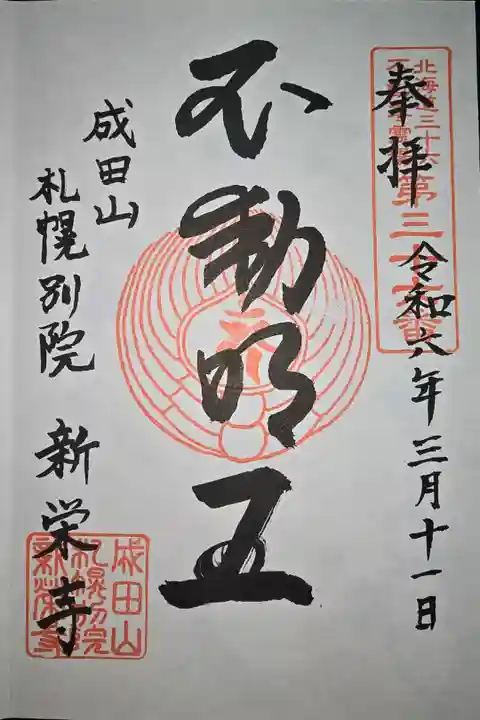 奉拝
令和六年三月十一日
北海道三十六
不動尊霊場
第三十六番
不動明王
成田山
札幌別院
新栄寺
成田山
札幌別院
新栄寺